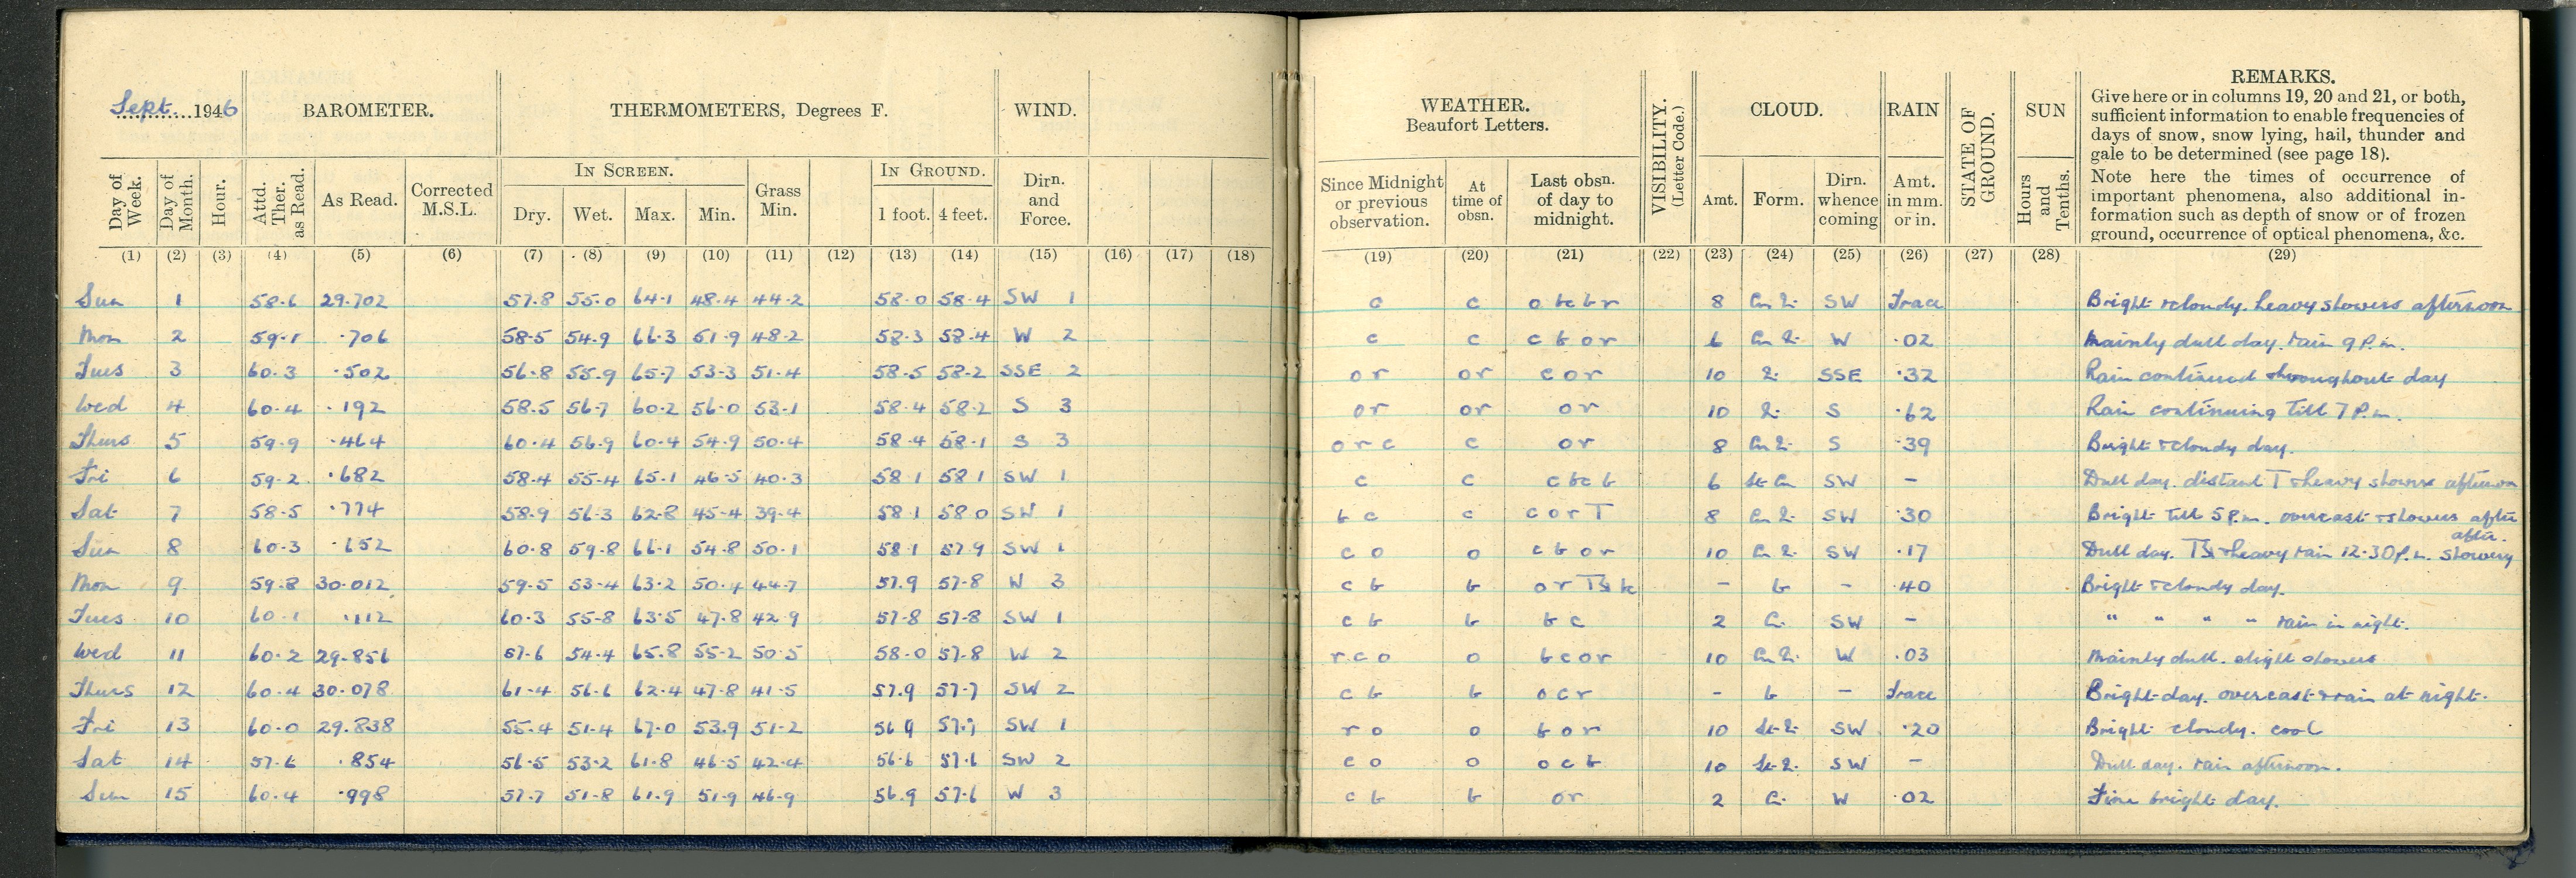 Sept. 1946 BAROMETER. THERMOMETERS, Degrees F. WIND.
Day of Week. Day of Month. Hour. Attd. Ther. as Read. As Read. Corrected M.S.L. IN SCREEN. Dry. Wet. Max. Min. Grass Min. IN GROUND. 1 foot. 4 feet. Dirn. and Force.
(1) (2) (3) (4) (5) (6) (7) (8) (9) (10) (11) (12) (13) (14) (15) (16) (17) (18)
Sun 1 58.6 29.702 57.8 55.0 64.1 48.4 44.2 58.0 58.4 SW 1
Mon 2 59.1 .706 58.5 54.9 66.3 51.9 48.2 58.3 58.4 W 2
Tues 3 60.3 .502 56.8 55.9 65.7 53.3 51.4 58.5 58.2 SSE 2
Wed 4 60.4 .192 58.5 56.7 60.2 56.0 53.1 58.4 58.2 S 3
Thurs 5 59.9 .464 60.4 56.9 60.4 54.9 50.4 58.4 58.1 S 3
Fri 6 59.2 .682 58.4 55.4 65.1 46.5 40.3 58.1 58.1 SW 1
Sat 7 58.5 .774 58.9 56.3 62.8 45.4 39.4 58.1 58.0 SW 1
Sun 8 60.3 .652 60.8 59.8 66.1 54.8 50.1 58.1 57.9 SW 1
Mon 9 59.8 30.012 59.5 53.4 63.2 50.4 44.7 57.9 57.8 W 3
Tues 10 60.1 .112 60.3 55.8 63.5 47.8 42.9 57.8 57.8 SW 1
Wed 11 60.2 29.856 57.6 54.4 65.8 55.2 50.5 58.0 57.8 W 2
Thurs 12 60.4 30.078 61.4 56.6 62.4 47.8 41.5 57.9 57.7 SW 2
Fri 13 60.0 29.838 55.4 51.4 67.0 53.9 51.2 56.9 57.7 SW 1
Sat 14 57.6 .854 56.5 53.2 61.8 46.5 42.4 56.6 57.6 SW 2
Sun 15 60.4 .998 57.7 51.8 61.9 51.9 46.9 56.9 57.6 W 3
WEATHER. Beaufort Letters. VISIBILITY. (Letter Code.) CLOUD. RAIN STATE OF GROUND. SUN REMARKS.
Give here or in columns 19, 20 and 21, or both,
sufficient information to enable frequencies of
days of snow, snow lying, hail, thunder and
gale to be determined (see page 18).
Note here the times of occurrence of
important phenomena, also additional in-
formation such as depth of snow or of frozen
ground, occurrence of optical phenomena, &c.
Since Midnight or previous observation. At time of obsn. Last obsn. of day to midnight. Amt. Form. Dirn. whence coming Amt. in mm. or in. Hours and Tenths.
(19) (20) (21) (22) (23) (24) (25) (26) (27) (28) (29)
c c o bc b r 8 SW Trace Bright & cloudy. heavy showers afternoon
c c c b o r 6 W .02 Mainly dull day. rain 9 P.m.
o r o r c o r 10 SSE .32 Rain continued throughout day
o r o r o r 10 S .62 Rain continuing till 7 P.m.
o r c c o r 8 S .39 Bright & cloudy day.
c c c bc b 6 SW - Dull day. distant T & heavy showers afternoon
b c c c o r T 8 SW .30 Bright till 5 P.m. overcast & showers after
c o o c b o r 10 SW .17 Dull day. & heavy rain 12.30 P.m. showery after.
c b b o r - b - .40 Bright & cloudy day.
c b b b c 2 SW - " " " " rain in night.
r c o o b c o r 10 W .03 Mainly dull. slight showers
c b b o c r - b - Trace Bright day. overcast & rain at night.
r o o b o r 10 SW .20 Bright cloudy. cool
c o o o c b 10 SW - Dull day. rain afternoon.
c b b o r 2 W .02 Fine bright day.